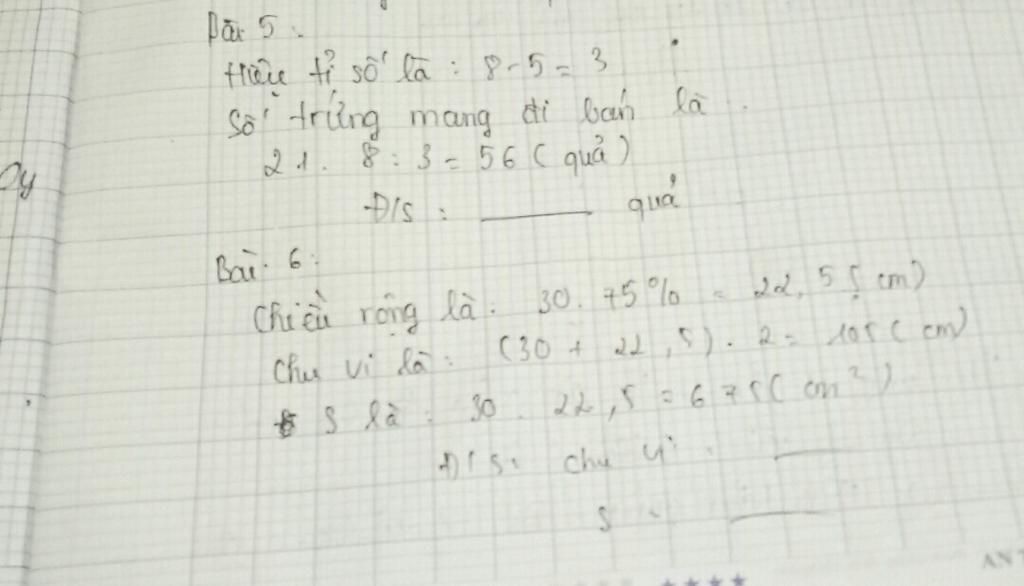 Bài 5 :
Hiệu tỉ số là : 8 - 5 = 3
Số trứng mang đi bán là :
21 . 8 : 3 = 56 ( quả )
Đ/S : ______ quả
Bài 6 :
Chiều rộng là : 30 . 75% = 22,5 ( cm )
Chu vi là : ( 30 + 22,5 ) . 2 = 105 ( cm )
S là : 30 . 22,5 = 675 ( cm² )
Đ/S : chu vi : ______
S : ______
AN